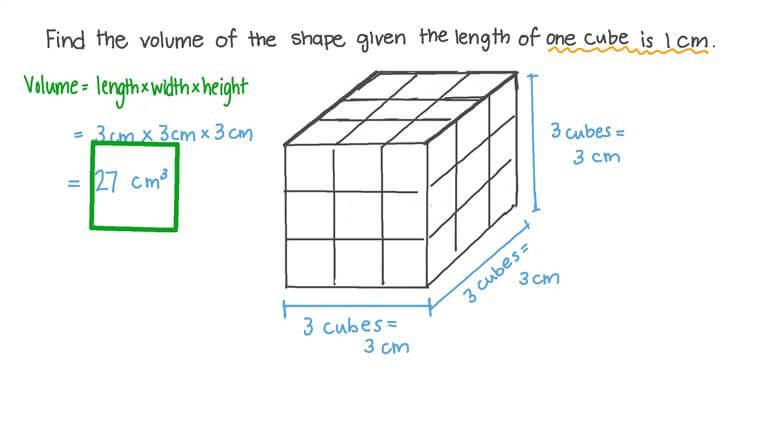 Find the volume of the shape given the length of one cube is 1 cm.
Volume = length × width × height
= 3 cm × 3 cm × 3 cm
= 27 cm³
3 cubes =
3 cm
3 cubes =
3 cm
3 cubes =
3 cm